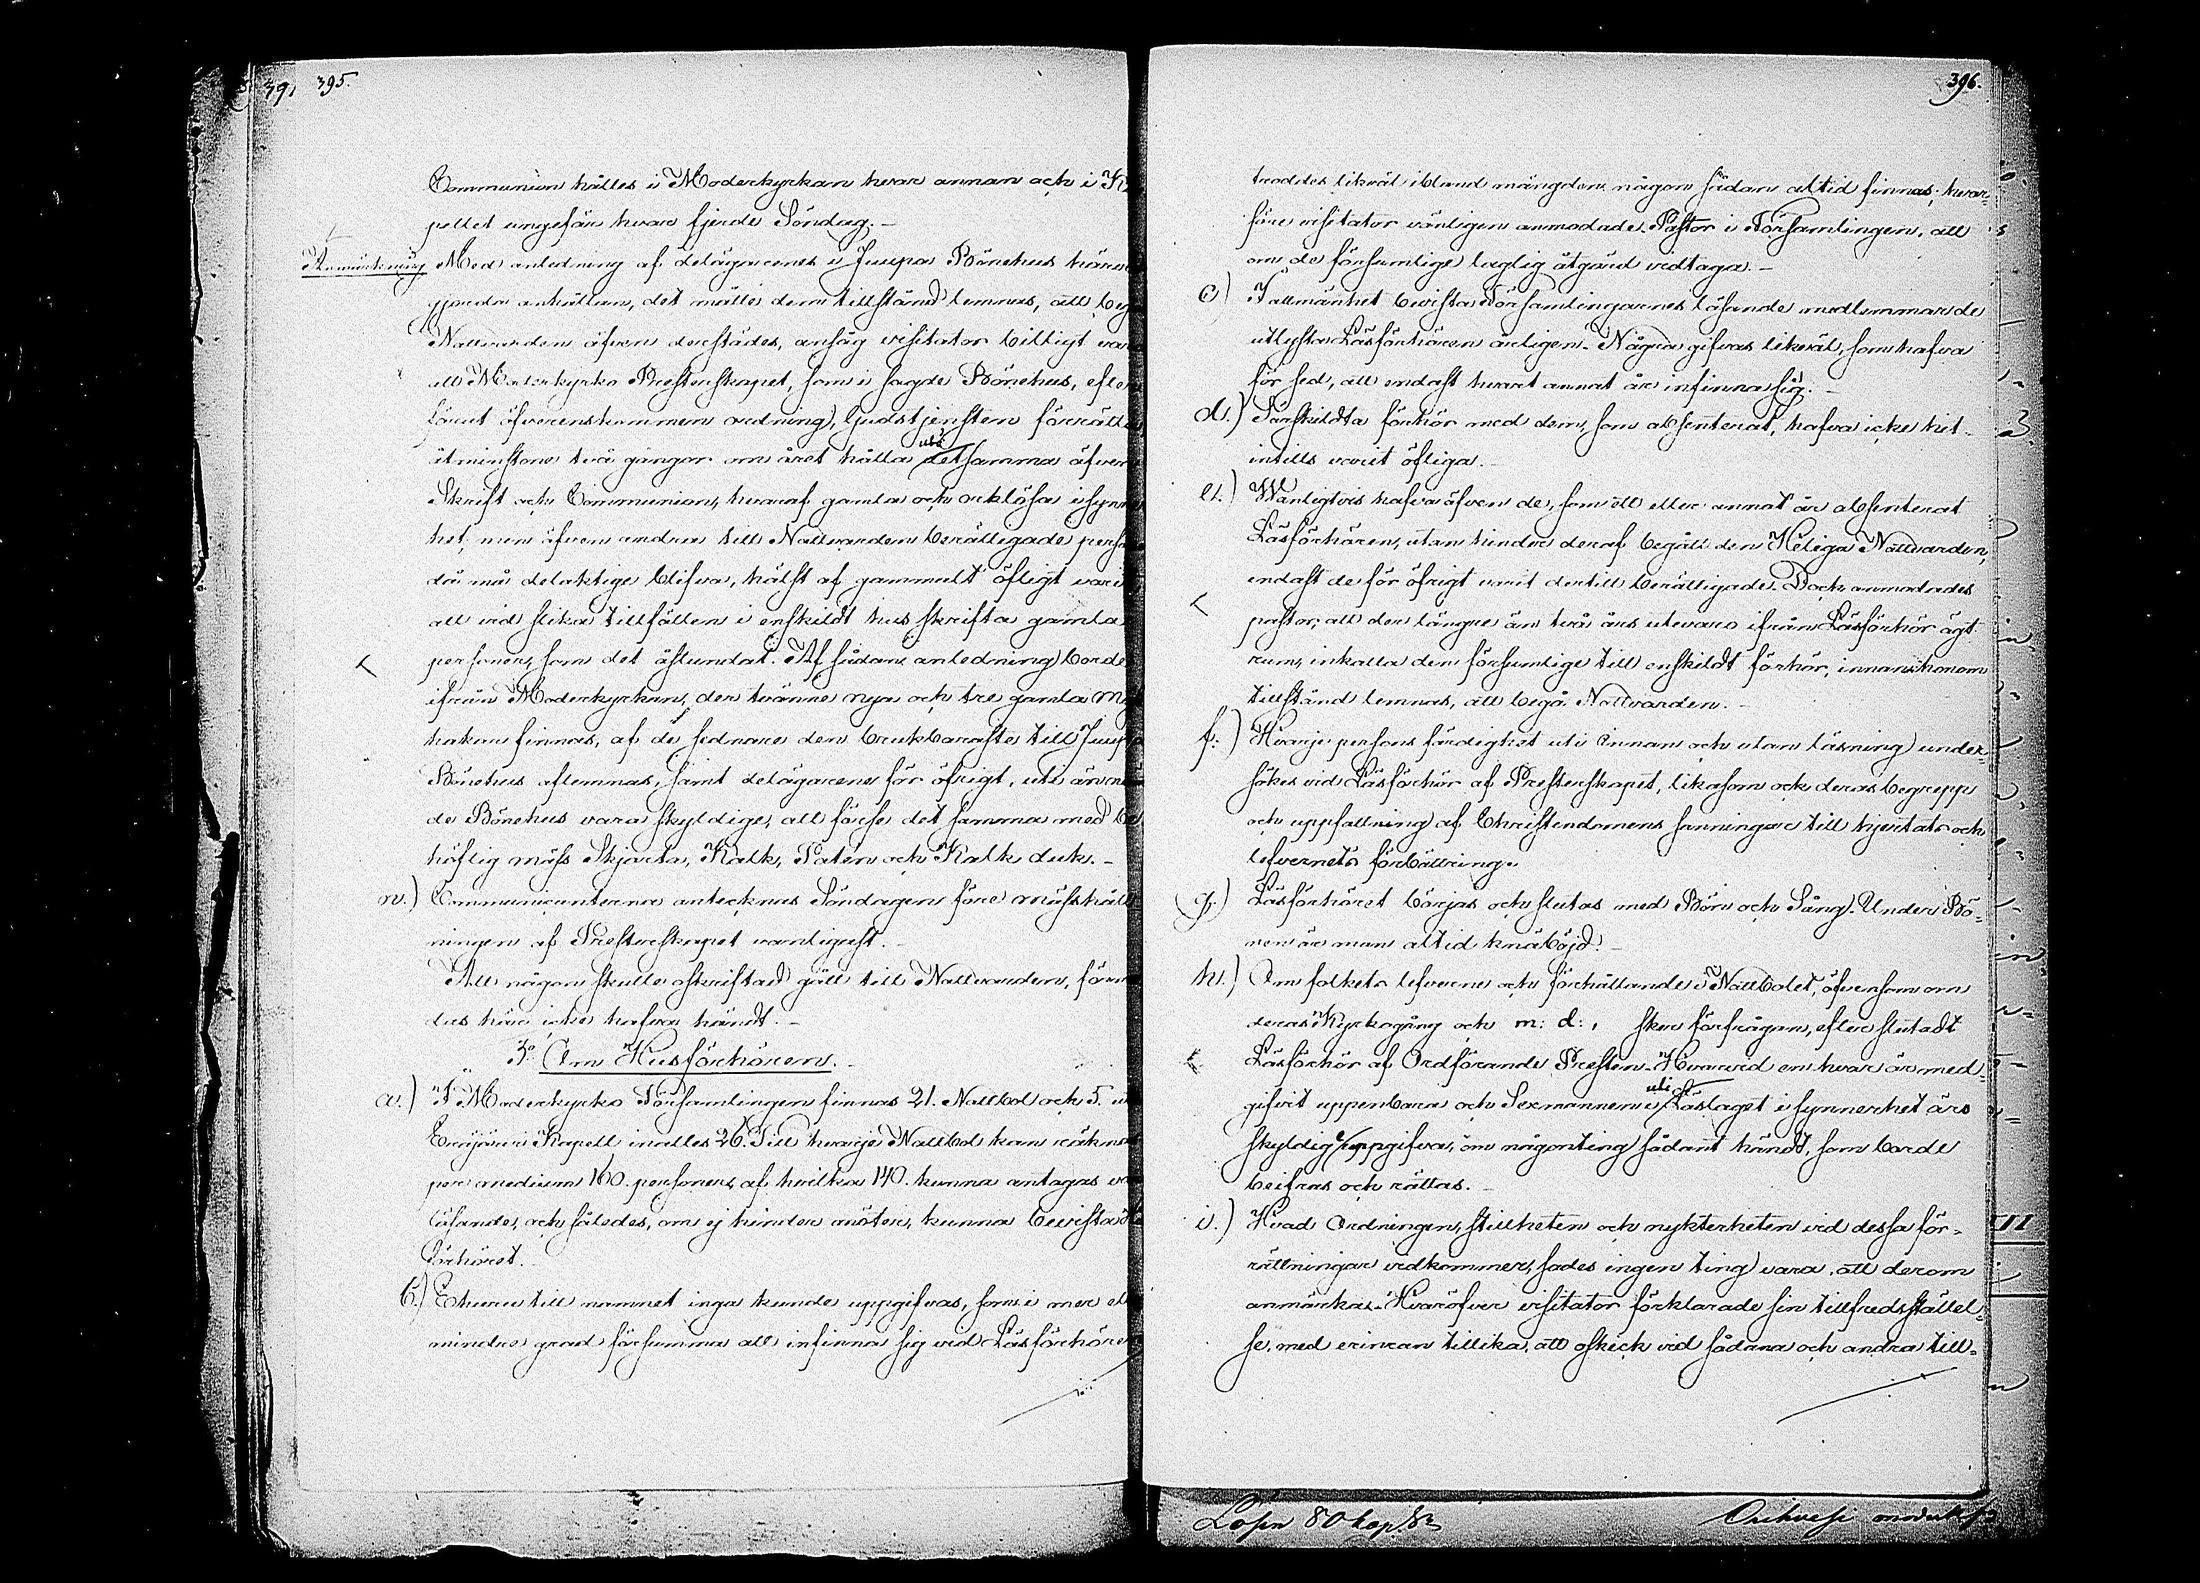 395.
Communion hålles i Moderkyrkan hvar annan och i Ka
pellet ungefär hvar fjerde Söndag. –
Anmärkning Med anledning af delägarenes i Juupa Bönehus härom
gjorda anhållan, det måtte dem tillstånd lemnas, att beg
Nattvarden äfven derstädes, ansåg visitator billigt va
att Moderkyrko Presterskapet, som i sagde Bönehus, efter
förut öfverenskommen ordning, Gudstjensten förrätta
åtminstone två gångor om året hålla uti detsamma äfven
Skrift och Communion, hvaraf gamla och orklösa i synner
het, men äfven andra till Nattvarden berättigade perso
då må delaktige blifva, hälst af gammalt öfligt varit
att vid slika tillfällen i enskildt hus skrifta gamla
personer, som det åstundat. Af sådan anledning borde
ifrån Moderkyrkan, der tvänne nya och tre gamla Mess
hakar finnas, af de sednare den brukbaraste till Juupa
Bönehus aflemnas, samt delägarene för öfrigt, uti ärende
de Bönehus vara skyldige, att förse det samma med be
höflig mäss Skjorta, Kalk, Patén och Kalk duk. –
n.) Communicanterna antecknas Söndagen före mässhåll
ningen af Presterskapet vanligast. –
Att någon skulle oskriftad gått till Nattvarden, förm
des här icke hafva händt. –
3:o Om Husförhören. –
a.) I Moderkyrko Församlingen finnas 21. Nattbol och 5. u
Kapell inalles 26. Till hvarje Nattbol kan räknas
per medium 160. personer, af hvilka 140. kunna antagas va
läsande, och således, om ej hinder möter, kunna bevista
förhöret.
b.) Ehuru till namnet inga kunde uppgifvas, som i mer el
mindre grad försumma att infinna sig vid Läsförhören
396.
troddes likväl ibland mängden någon sådan altid finnas; hvar-
före visitator vänligen anmodade Pastor i Församlingen, att
om de försumlige laglig åtgärd vidtaga. –
c.) I allmänhet bevista Församlingarnes läsande medlemmar de
utlysta Läsförhören årligen. Några gifvas likväl, som hafva
för sed, att endast hvart annat år infinna sig. –
d.) Särskildta förhör med dem, som absenterat, hafva icke hit-
intills varit öfliga. –
e.) Wanligtvis hafva äfven de, som ett eller annat år absenterat
Läsförhören, utan hinder deraf begått den Heliga Nattvarden,
endast de för öfrigt varit dertill berättigade. Dock anmodades
pastor, att der längre än två års utevaro ifrån Läsförhör ägt
rum, inkalla den försumlige till enskildt förhör, innan honom
tillstånd lemnas, att begå Nattvarden. –
f.) Hvarje persons färdighet uti innan och utan läsning under-
sökes vid Läsförhör af Presterskapet, likasom ock deras begrepp
och uppfattning af Christendomens sanningar till hjertats och
lefvernets förbättring.
g.) Läsförhöret börjas och slutas med Bön och Sång. Under Bö-
nen är man altid knäböjd. –
h.) Om folkets lefverne och förhållande i Nattbolet, äfvensom om
deras Kyrkogång och m: d:, sker förfrågan, efter slutadt
Läsförhör af Ordförande Presten. Hvarvid en hvar är med-
gifvit uppenbara och Sexmannen uti Läslaget i synnerhet ärs
skyldig uppgifva, om någonting sådant händt, som borde
beifras och rättas. –
i.) Hvad Ordningen, stillheten och nykterheten vid dessa för-
rättningar vidkommer, sades ingen ting vara, att derom
anmärka. Hvaröfver visitator förklarade sin tillfredsställel-
se, med erinran tillika, att oskick vid sådana och andra till-
Lösen 80 kop. Sr